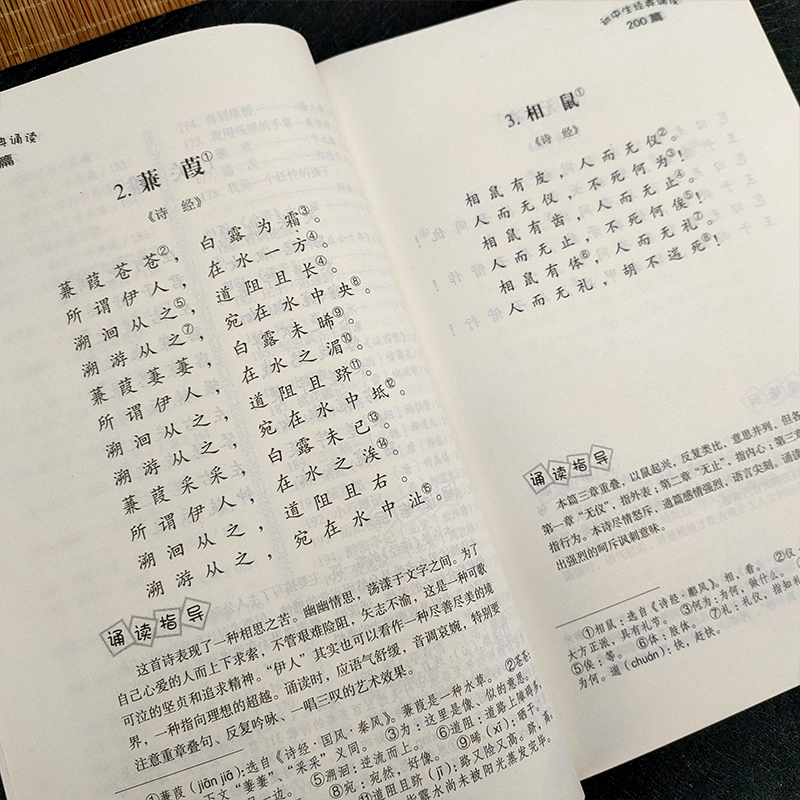 典诵读
篇
2. 蒹 葭①
《诗 经》
蒹葭苍苍②，白露为霜③。
所谓伊人，在水一方④。
溯洄从之⑤，道阻且长⑥。
溯游从之⑦，宛在水中央⑧。
蒹葭萋萋，白露未晞⑨。
所谓伊人，在水之湄⑩。
溯洄从之，道阻且跻⑪。
溯游从之，宛在水中坻⑫。
蒹葭采采，白露未已⑬。
所谓伊人，在水之涘⑭。
溯洄从之，道阻且右。
溯游从之，宛在水中沚⑮。
诵读指导
这首诗表现了一种相思之苦。幽幽情思，荡漾于文字之间。为了
自己心爱的人而上下求索，不管艰难险阻，矢志不渝，这是一种可歌
可泣的坚贞和追求精神。“伊人”其实也可以看作一种尽善尽美的境
界，一种指向理想的超越。诵读时，应语气舒缓，音调哀婉，特别要
注意重章叠句、反复吟咏、一唱三叹的艺术效果。
①蒹葭（jiān jiā）：选自《诗经·国风·秦风》。蒹葭是一种水草。②苍苍
下文“萋萋”、“采采”义同。③为：这里是像、似的意思。
一边。⑤溯洄：逆流而上。⑥道阻：道路上障碍多，
⑧宛：宛然，好像。⑨晞（xī）：晒干。
⑪道阻且跻（jī）：路又险又高。跻，高，
些露水尚未被阳光蒸发完毕。
初中生经典诵读
200篇
3. 相 鼠①
《诗 经》
相鼠有皮，人而无仪②。
人而无仪，不死何为③！
相鼠有齿，人而无止④。
人而无止，不死何俟⑤！
相鼠有体⑥，人而无礼⑦。
人而无礼，胡不遄死⑧！
诵读指导
本篇三章重叠，以鼠起兴，反复类比，意思并列，但各
第一章“无仪”，指外表；第二章“无止”，指内心；第三章
指行为。本诗尽情怒斥，通篇感情强烈，语言尖刻。诵读
出强烈的呵斥讽刺意味。
①相鼠：选自《诗经·鄘风》。相，看。②仪
大方正派，具有礼节。③何为：为何，做什么。
⑤俟：等。⑥体：肢体。⑦礼：礼仪，指知礼
为何。遄（chuán）：快，赶快。